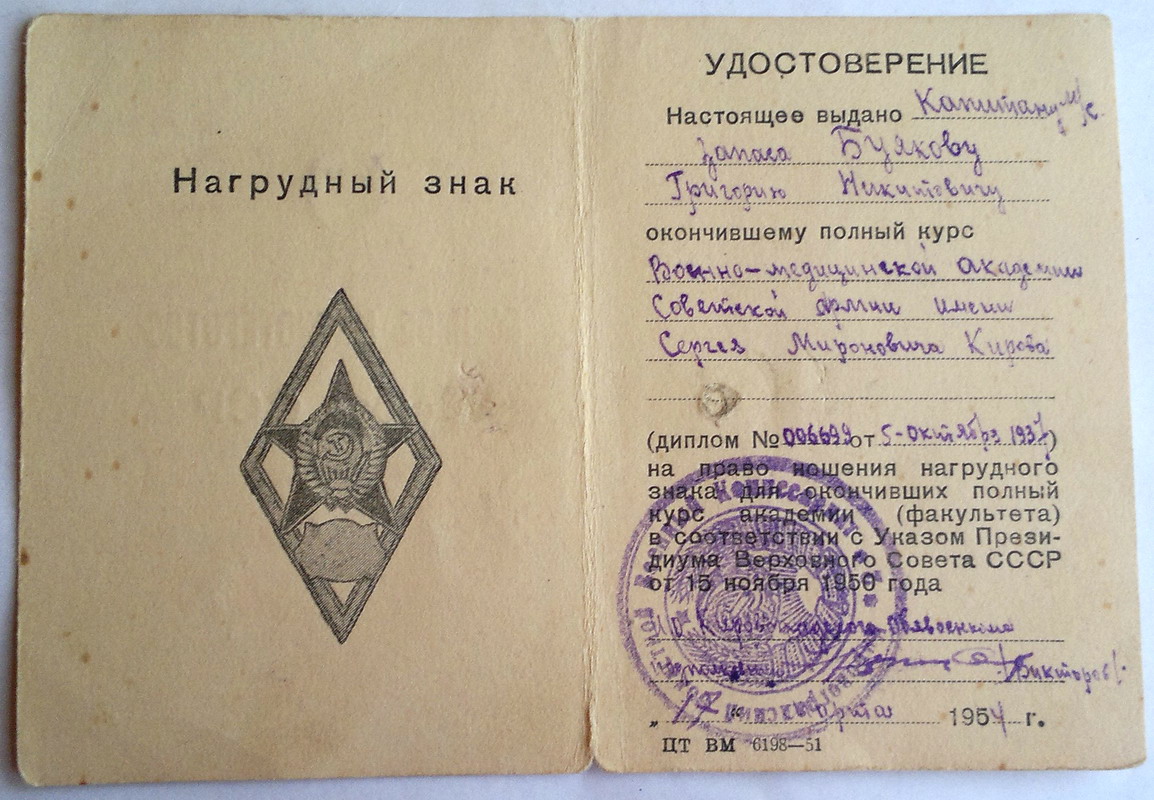 Нагрудный знак
УДОСТОВЕРЕНИЕ
Настоящее выдано Капитану м/с.
запаса Буякову
Григорию Никитовичу
окончившему полный курс
Военно-медицинской академии
Советской армии имени
Сергея Мироновича Кирова
(диплом № 006699 от 5-октября 1937)
на право ношения нагрудного
знака для окончивших полный
курс академии (факультета)
в соответствии с Указом Прези-
диума Верховного Совета СССР
от 15 ноября 1950 года
Облвоенкома
Викторов
„17“ марта 1954 г.
ЦТ ВМ 6198—51